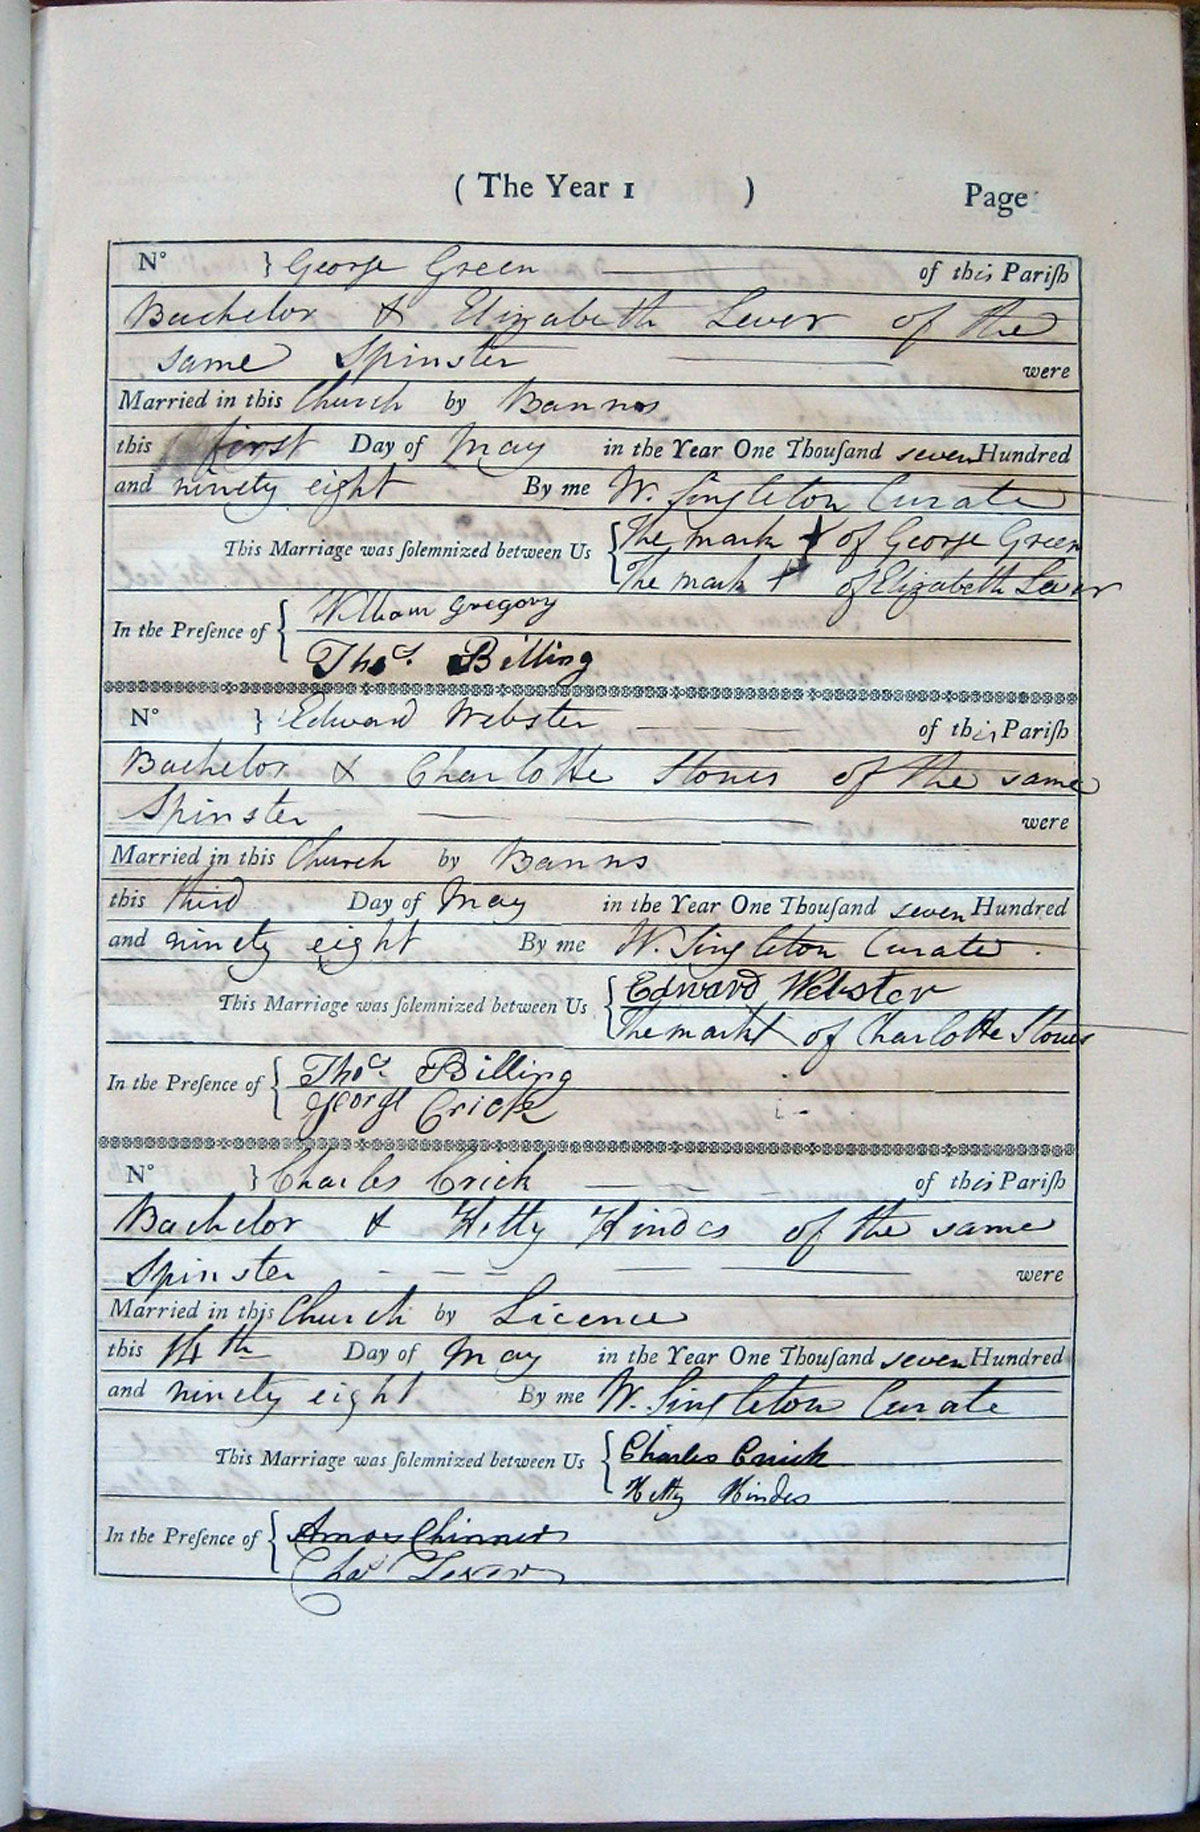 ( The Year 1 ) Page
N° } George Green of this Pariſh
Bachelor & Elizabeth Lever of the
same Spinster were
Married in this Church by Banns
this first Day of May in the Year One Thouſand seven Hundred
and ninety eight By me W. Singleton Curate
This Marriage was ſolemnized between Us { The mark + of George Green
The mark + of Elizabeth Lever
In the Preſence of { William Gregory
Thos. Billing
N° } Edward Webster of this Pariſh
Bachelor & Charlotte Stones of the same
Spinster were
Married in this Church by Banns
this third Day of May in the Year One Thouſand seven Hundred
and ninety eight By me W. Singleton Curate.
This Marriage was ſolemnized between Us { Edward Webster
The mark + of Charlotte Stones
In the Preſence of { Thos. Billing
George Crick
N° } Charles Crick of this Pariſh
Bachelor & Hetty Hindes of the same
Spinster were
Married in this Church by Licence
this 14th Day of May in the Year One Thouſand seven Hundred
and ninety eight By me W. Singleton Curate
This Marriage was ſolemnized between Us { Charles Crick
Hetty Hindes
In the Preſence of { Amos Chinner
Chas Lever